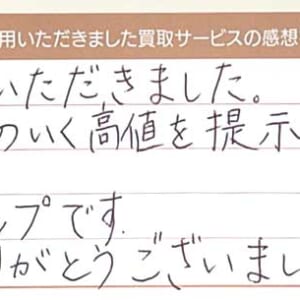 用いただきました買取サービスの感想
いただきました。
のいく高値を提示
プです.
がとうございまし